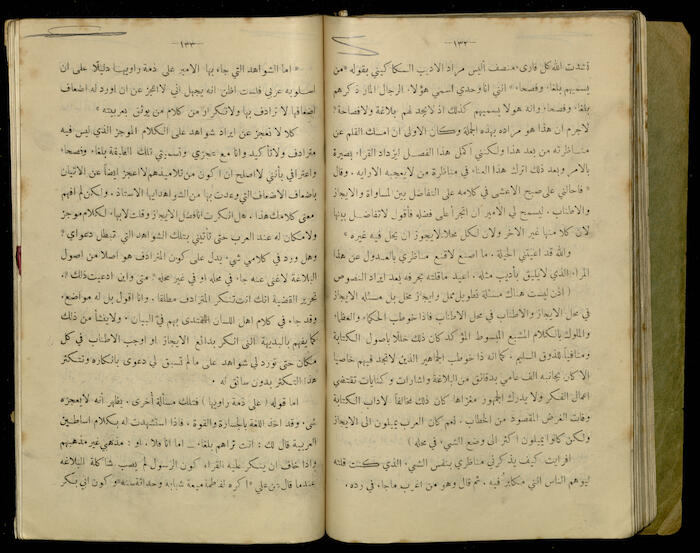 — ١٣٢ —
أنشدت الله كل قارىء منصف أليس مراد الاديب السكاكيني بقوله «من
يسميهم بلغاء وفصحاء» انني انا وحدي اسمي هؤلاء الرجال المار ذكرهم
بلغاء وفصحاء وانه هو لا يسميهم كذلك اذ لا يجد لهم بلاغة ولا فصاحة؟
لاجرم ان هذا هو مراده بهذه الجملة وكان الاولى ان امسك القلم عن
مناظرته من بعد هذا ولكنني أكمل هذا الفصل ليزداد القراء بصيرة
بالامر وبعد ذلك اترك هذا العناء في مناظرة من لا يعجبه الا رايه. وقال
« فاحالني على صبح الاعشى في كلامه على التفاضل بين المساواة والايجاز
والاطناب. ليسمح لي الامير ان اتجرأ على فضله فأقول لا تفاضل بينها
لان كلا منها غير الآخر ولان لكل محلا لا يجوز ان يحل فيه غيره »
والله قد اعيتني الحيلة. ما اصنع لاقنع مناظري بالعدول عن هذا
المراء الذي لا يليق بأديب مثله. اعيد ما قلته بحرفه بعد ايراد النصوص
( اذن ليست هناك مسئلة تطويل ممل وايجاز مخل بل مسئلة الايجاز
في محل الايجاز والاطناب في محل الاطناب فاذا خوطب الحكماء والعظماء
والملوك بالكلام المشبع المبسوط المؤكد كان ذلك خللا بأصول الكتابة
ومنافيا للذوق السليم. كما انه اذا خوطب الجماهير الذين لا تجد فيهم خاصيا
الا كان بجانبه الف عامي بدقائق من البلاغة واشارات وكنايات تقتضي
اعمال الفكر ولا يدرك الجمهور مغزاها كان ذلك مخالفا لآداب الكتابة
وفات الغرض المقصود من الخطاب. نعم كان العرب يميلون الى الايجاز
ولكن كانوا يميلون اكثر الى وضع الشيء في محله )
افرايت كيف يذكرني مناظري بنفس الشيء الذي كنت قلته
ليوهم الناس انني مكابر فيه. ثم قال وهو من اغرب ما جاء في رده.
— ١٣٣ —
« اما الشواهد التي جاء بها الامير على ذمة راويها دليلا على ان
اسلوبه عربي فلست اظن انه يجهل اني لا اعجز عن ان اورد له اضعاف
اضعافها لا ترادف بها ولا تكرار من كلام من يوثق بعربيته »
كلا لا تعجز عن ايراد شواهد على الكلام الموجز الذي ليس فيه
مترادف ولا تأكيد وانا مع عجزي وتسميتي تلك الطبقة بلغاء وفصحاء
واعترافي بأنني لا اصلح ان اكون من تلاميذهم لا اعجز ايضا عن الاتيان
باضعاف الاضعاف التي وعدت بها من الشواهد ايها الاستاذ. ولكن لم افهم
معنى كلامك هذا. هل انكرت انا فضل الايجاز وقلت لا يوجد لكلام موجز
ولا مكان له عند العرب حتى تأتيني بتلك الشواهد التي تبطل دعواي؟
وهل ورد في كلامي شيء يدل على كون المترادف هو اصلا من اصول
البلاغة لا غنى عنه جاء في محله او في غير محله؟ متى واين ادعيت ذلك؟.
تحرير القضية انك انت تنكر المترادف مطلقا. وانا اقول بل له مواضع.
وقد جاء في كلام اهل اللسان المقتدى بهم في البيان. ولا ينشأ من ذلك
كما يفهم بالبديهة انني انكر بدائع الايجاز او اوجب الاطناب في كل
مكان حتى تورد لي شواهد على ما لم تسبق لي دعوى بانكاره وتتكثر
هذا التكثر بدون سائق له.
اما قوله ( على ذمة راويها ) فتلك مسألة أخرى. يظهر أنه لا يعجزه
شيء وقد اخذ اللغة بالجسارة والقوة. فاذا استشهدت له بكلام اساطين
العربية قال لك: انت تراهم بلغاء. اما انا فلا. او: مذهبي غير مذهبهم
واذا خاف ان ينكر عليه القراء كون الرسول لم يصب شاكلة البلاغة
عندما قال عن علي « اكره لفاطمة ميعة شبابه وحداثة سنه » وكون ابي بكر